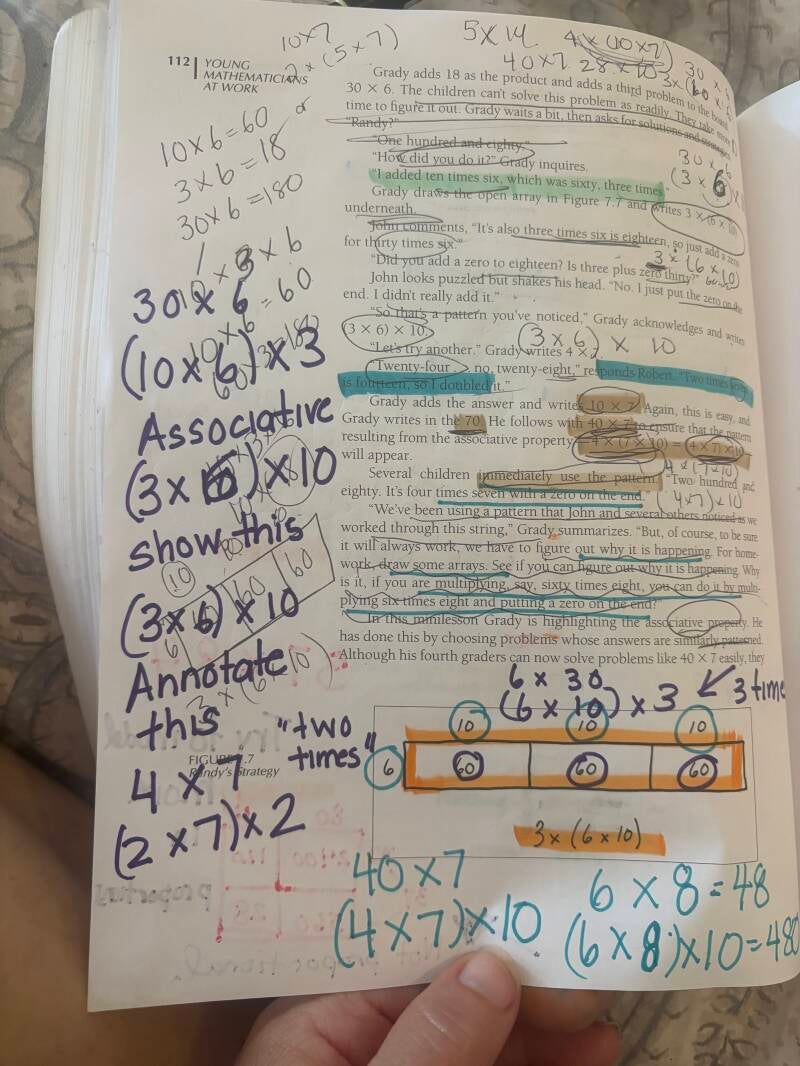 10x7
2 x (5 x 7)
5X14
4 x (10x7)
40x7
28 x 10
3x(60
30 x
112 | YOUNG
MATHEMATICIANS
AT WORK
Grady adds 18 as the product and adds a third problem to the board
30 × 6. The children can't solve this problem as readily. They take more
time to figure it out. Grady waits a bit, then asks for solutions and strategies.
"Randy?"
"One hundred and eighty."
"How did you do it?" Grady inquires.
"I added ten times six, which was sixty, three times."
Grady draws the open array in Figure 7.7 and writes 3 × (6 × 10)
underneath.
John comments, "It's also three times six is eighteen, so just add a zero
for thirty times six."
"Did you add a zero to eighteen? Is three plus zero thirty?"
John looks puzzled but shakes his head. "No. I just put the zero on the
end. I didn't really add it."
"So that's a pattern you've noticed," Grady acknowledges and writes
(3 × 6) × 10.
"Let's try another." Grady writes 4 × 7.
"Twenty-four . . . no, twenty-eight," responds Robert. "Two times seven
is fourteen, so I doubled it."
Grady adds the answer and writes 10 × 7. Again, this is easy, and
Grady writes in the 70. He follows with 40 × 7 to ensure that the pattern
resulting from the associative property = 4 × (7 × 10) = (4 × 7) × 10
will appear.
Several children immediately use the pattern. "Two hundred and
eighty. It's four times seven with a zero on the end."
"We've been using a pattern that John and several others noticed as we
worked through this string," Grady summarizes. "But, of course, to be sure
it will always work, we have to figure out why it is happening. For home-
work, draw some arrays. See if you can figure out why it is happening. Why
is it, if you are multiplying, say, sixty times eight, you can do it by multi-
plying six times eight and putting a zero on the end?"
In this minilesson Grady is highlighting the associative property. He
has done this by choosing problems whose answers are similarly patterned.
Although his fourth graders can now solve problems like 40 × 7 easily, they
30 x 6
(3 x 6)
3x (6 x 10)
(3 x 6) x 10
4 x (7x10)
(4x7) x 10
or
10x6=60
3x6=18
30x6=180
30 x 6
(10x6) x 3
Associative
(3x6)x10
show this
(3x6)x10
Annotate
this
4 x 7
(2 x 7)x 2
"two
times"
10
60
60
6
FIGURE 7.7
Randy's Strategy
6 x 30
(6 x 10) x 3
3 time
10 10 10
6 60 60 60
3 x (6 x 10)
40x7
(4x7)x10
6 x 8=48
(6x8)x10=480